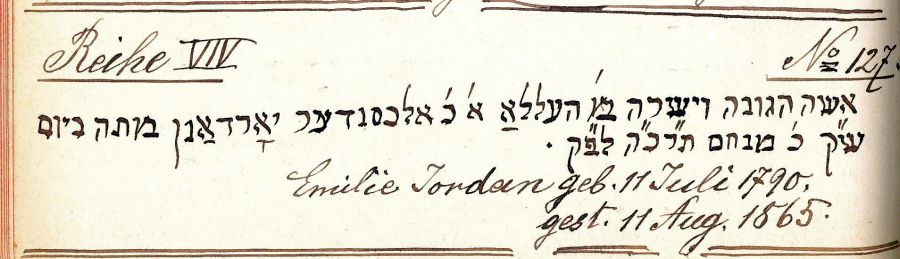 Reihe VIV
No 127.
אשה הגונה וישרה מ' העללאַ א' כ' אלכסנדער יאָרדאַן מתה ביום
עש"ק כ' מנחם תרכ"ה לפ"ק .
Emilie Jordan geb. 11 Juli 1790.
gest. 11 Aug. 1865.